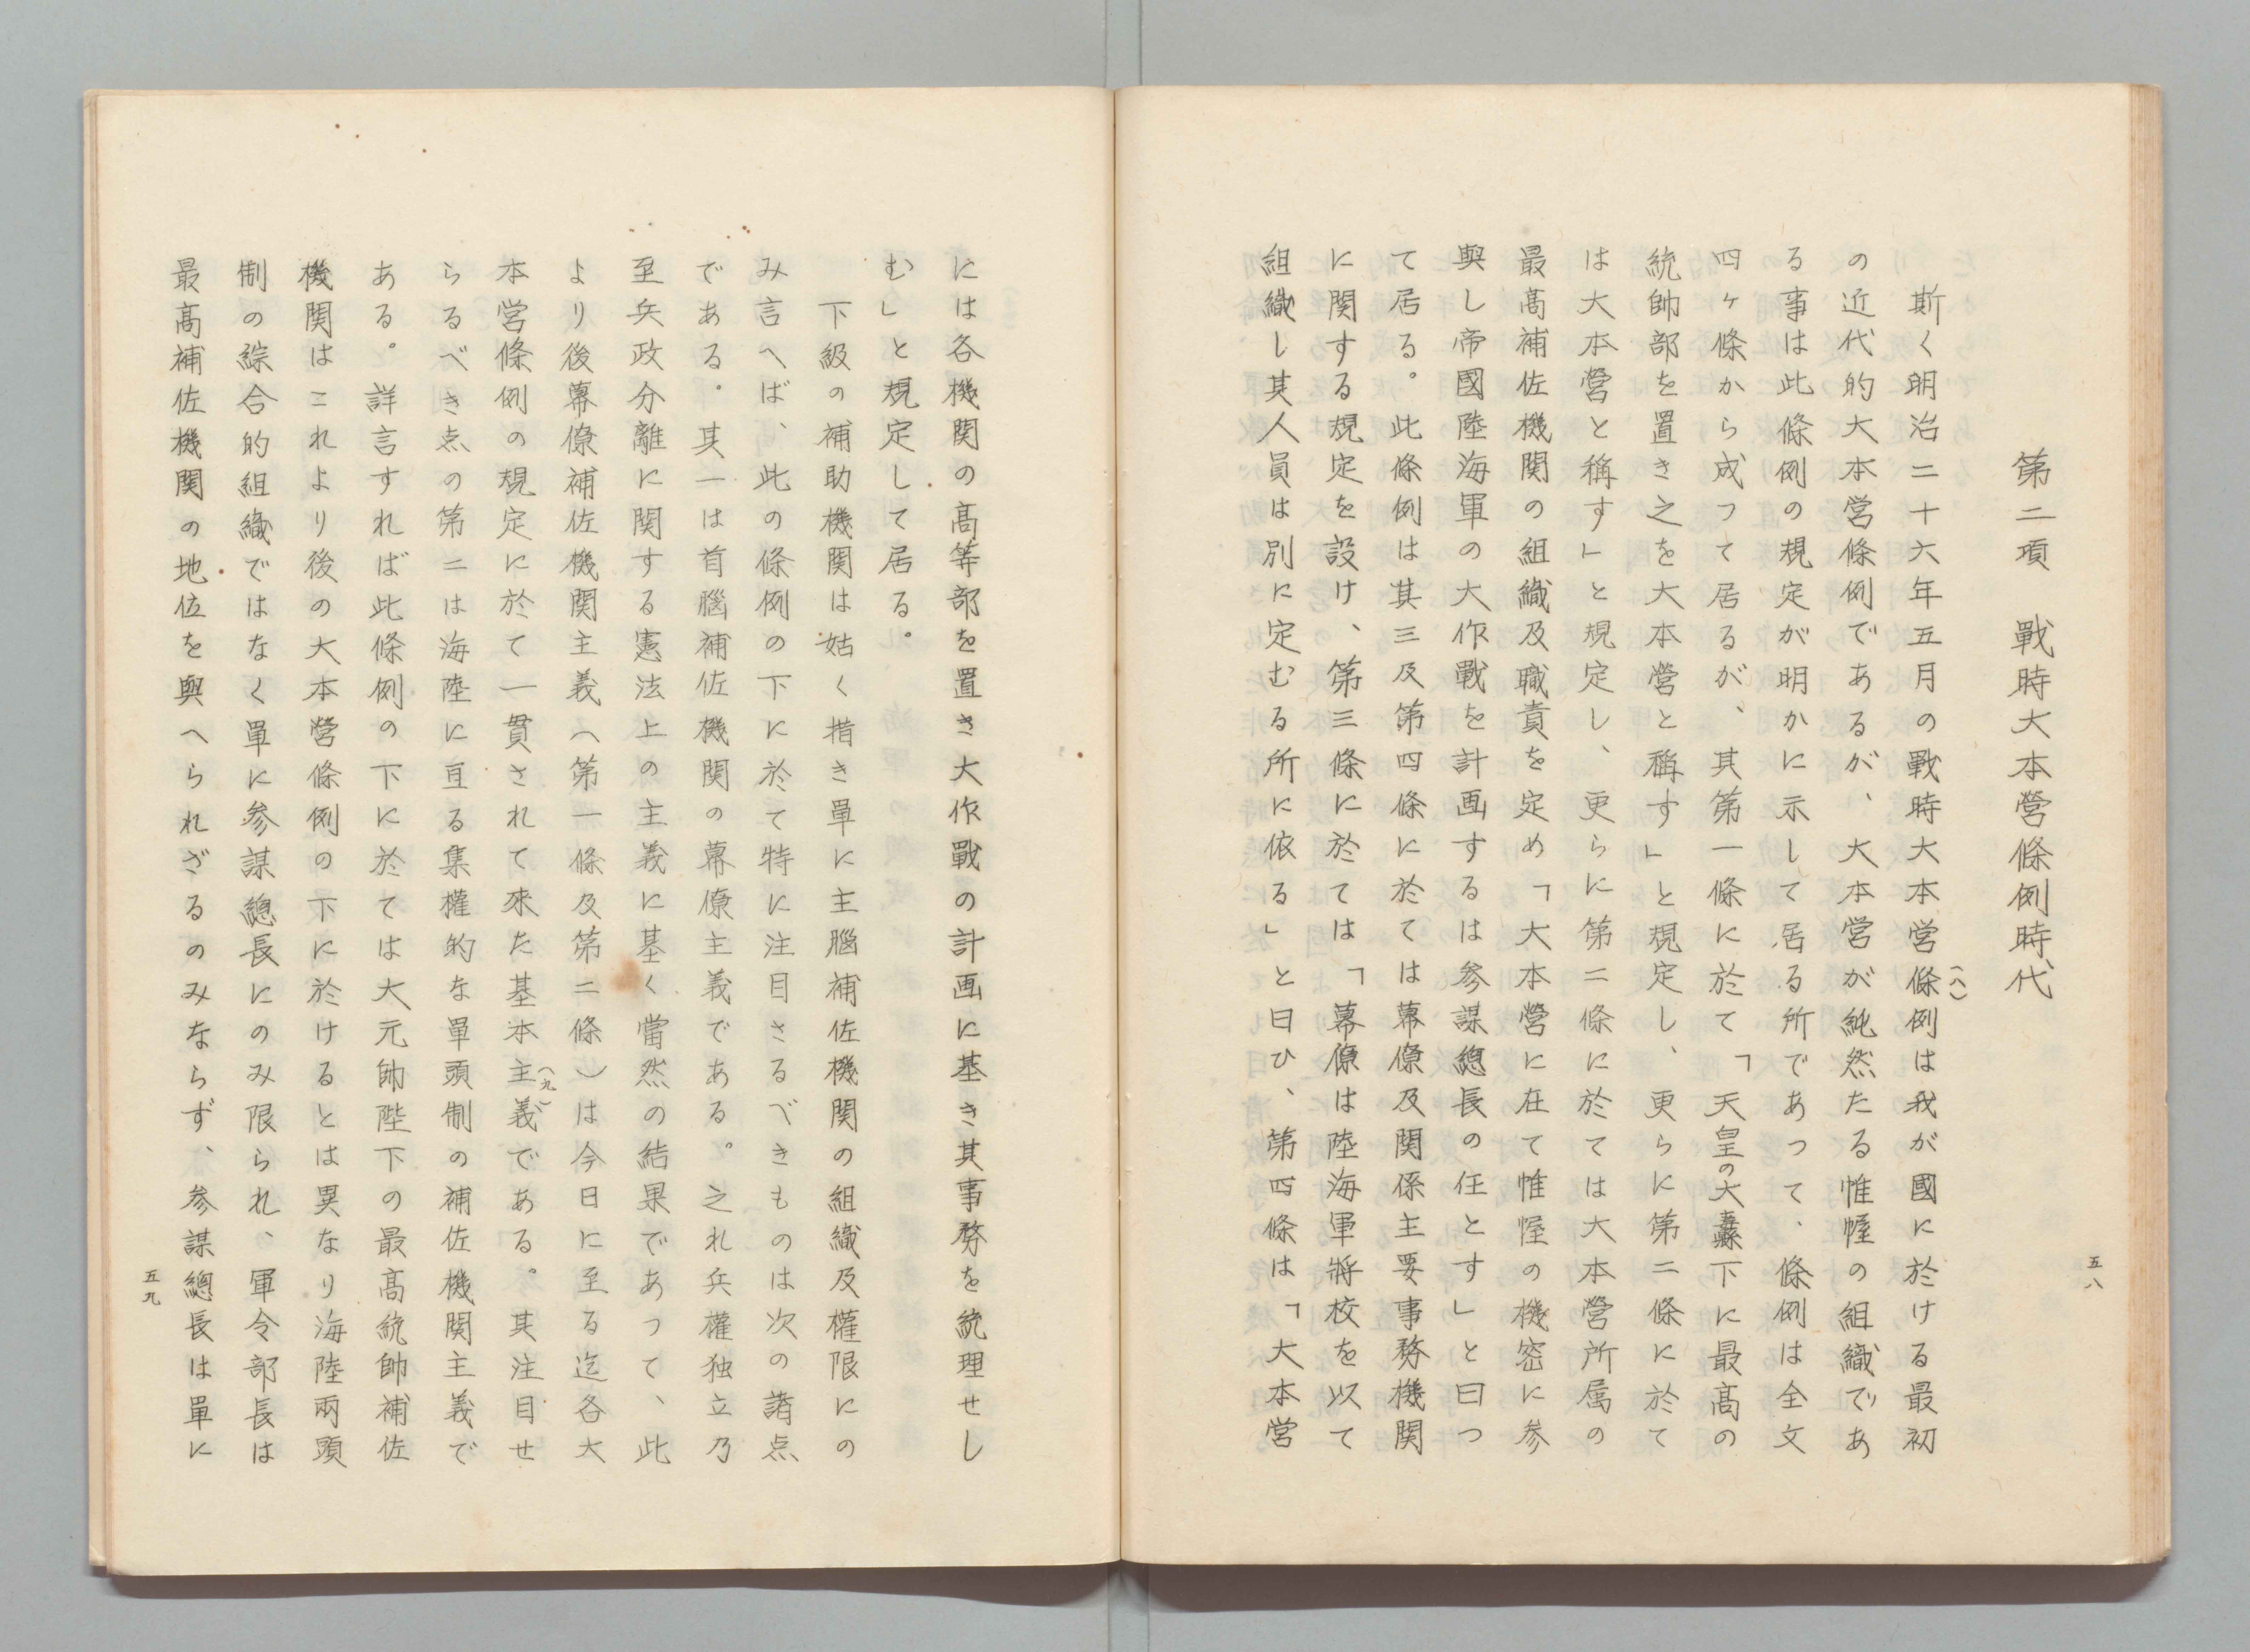 第二項　戰時大本営條例時代
斯く明治二十六年五月の戰時大本営條例(八)は我が國に於ける最初
の近代的大本営條例であるが、大本営が純然たる惟幄の組織であ
る事は此條例の規定が明かに示して居る所であって、條例は全文
四ヶ條から成って居るが、其第一條に於て「天皇の大纛下に最高の
統帥部を置き之を大本営と稱す」と規定し、更らに第二條に於て
は大本営と稱す」と規定し、更らに第二條に於ては大本営所属の
最高補佐機関の組織及職責を定め「大本營に在て惟幄の機密に参
與し帝國陸海軍の大作戰を計画するは参謀總長の任とす」と曰つ
て居る。此條例は其三及第四條に於ては幕僚及関係主要事務機関
に関する規定を設け、第三條に於ては「幕僚は陸海軍將校を以て
組織し其人員は別に定むる所に依る」と曰ひ、第四條は「大本営
五八
には各機関の高等部を置き大作戰の計画に基き其事務を統理せし
む」と規定して居る。
下級の補助機関は姑く措き單に主腦補佐機関の組織及權限にの
み言へば、此の條例の下に於て特に注目さるべきものは次の諸点
である。其一は首腦補佐機関の幕僚主義である。之れ兵權独立乃
至兵政分離に関する憲法上の主義に基く當然の結果であって、此
より後幕僚補佐機関主義(第一條及第二條)は今日に至る迄各大
本営條例の規定に於て一貫されて来た基本主義(九)である。其注目せ
らるべき点の第二は海陸に亘る集權的な單頭制の補佐機関主義で
ある。詳言すれば此條例の下に於ては大元帥陛下の最高統帥補佐
機関はこれより後の大本營條例の下に於けるとは異なり海陸兩頭
制の綜合的組織ではなく單に参謀總長にのみ限られ、軍令部長は
最高補佐機関の地位を與へられざるのみならず、参謀總長は單に
五九